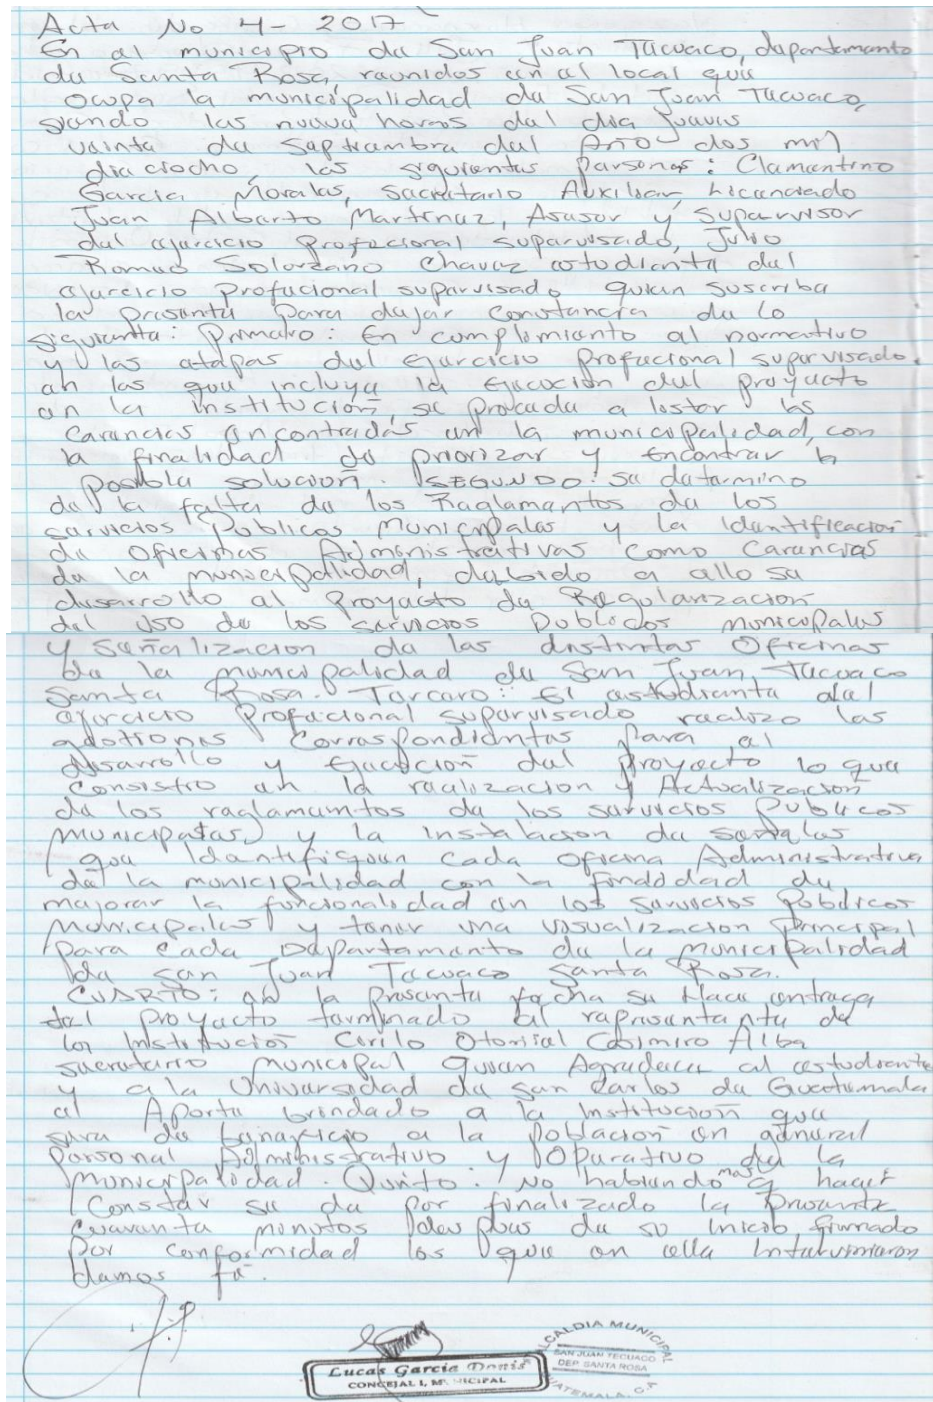 Acta No 4- 2017
En al municipio da San Juan Tacuaco, dapantamanto
da Santa Rosa, raunidos an al local qua
ocupa la municipalidad da San Juan Tacuaco,
siando las nuava horas dal dia Juavas
vainta da Saptiambra dal Año dos mil
diaciocho, las siguiantas Parsonas: Clamantino
Garcia Moralas, Sacratario Auxiliar, Licanciado
Juan Albarto Martinaz, Asasor y Suparvisor
dal ajarcicio Profacional suparvisado, Julio
Romao Solorzano Chavaz astudianta dal
ajarcicio Profacional suparvisado quian suscriba
la prasanta Para dajar Constancia da lo
siguianta: Primaro: En cumplimiento al normativo
y las atapas dal Ejarcicio Profacional suparvisado.
an las qua incluya la Ejacución dal proyacto
an la institución, sa procada a listar las
Carancias ancontradas an la municipalidad, con
la finalidad da priorizar y Encontrar la
Posibla solución. SEGUNDO: Sa datarmino
da la falta da los Raglamantos da los
sarvicios Públicos Municipalas y la Idantificación
da Oficinas Administrativas como Carancias
da la municipalidad, dabido a allo sa
dasarrollo al Proyacto da Ragularización
dal uso da los sarvicios Publicos municipalas
y sañalización da las distintas Oficinas
da la municipalidad da San Juan Tacuaco
Santa Rosa. Tarcaro: El astudianta dal
ajarcicio Profacional suparvisado raalizo las
gastionas Corraspondiantas Para al
dasarrollo y Ejacución dal Proyacto lo qua
Consistio an la raalización y Actualización
da los raglamantos da los sarvicios Publicos
Municipalas y la instalacion da sañalas
qua Idantifiquan cada oficina Administrativa
da la municipalidad con la finalidad da
majorar la funcionalidad an los sarvicios Públicos
Municipalas y tanar una visualización Principal
Para cada Dapartamanto da la municipalidad
da San Juan Tacuaco Santa Rosa.
CUARTO: an la Prasanta facha sa Haca antraga
dal proyacto tarminado al raprasantanta da
la Institución Cirilo Otonial Casimiro Alba
sacratario Municipal quian Agradaca al astudianta
y a la Univarsidad da San Carlos da Guatamala
al Aporta brindado a la Institución qua
sara da banaficio a la Población an ganaral
Parsonal Administrativo y Oparativo da la
Municipalidad. Quinto: No habiando mas q hacar
Constar sa da por finalizado la Prasanta
Cuaranta minutos daspuas da su Inicio firmado
por conformidad los qua an alla Intarviniaron
damos fa.
Lucas Garcia Donis
CONCEJAL I, MUNICIPAL
ALCALDIA MUNICIPAL
SAN JUAN TECUACO
DEP. SANTA ROSA
GUATEMALA, C.A